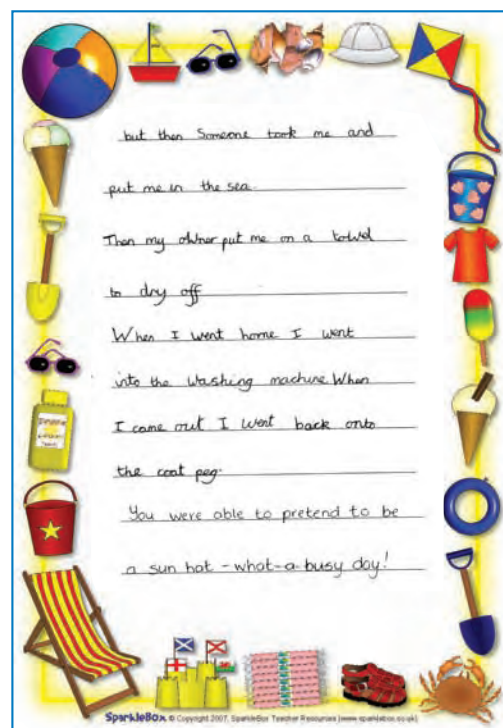 but then Someone took me and
put me in the sea.
Then my owner put me on a towel
to dry off
When I went home I went
into the washing machine. When
I came out I went back onto
the coat peg.
You were able to pretend to be
a sun hat - what-a-busy day!
SparkleBox © Copyright 2007, SparkleBox Teacher Resources (www.sparklebox.co.uk)